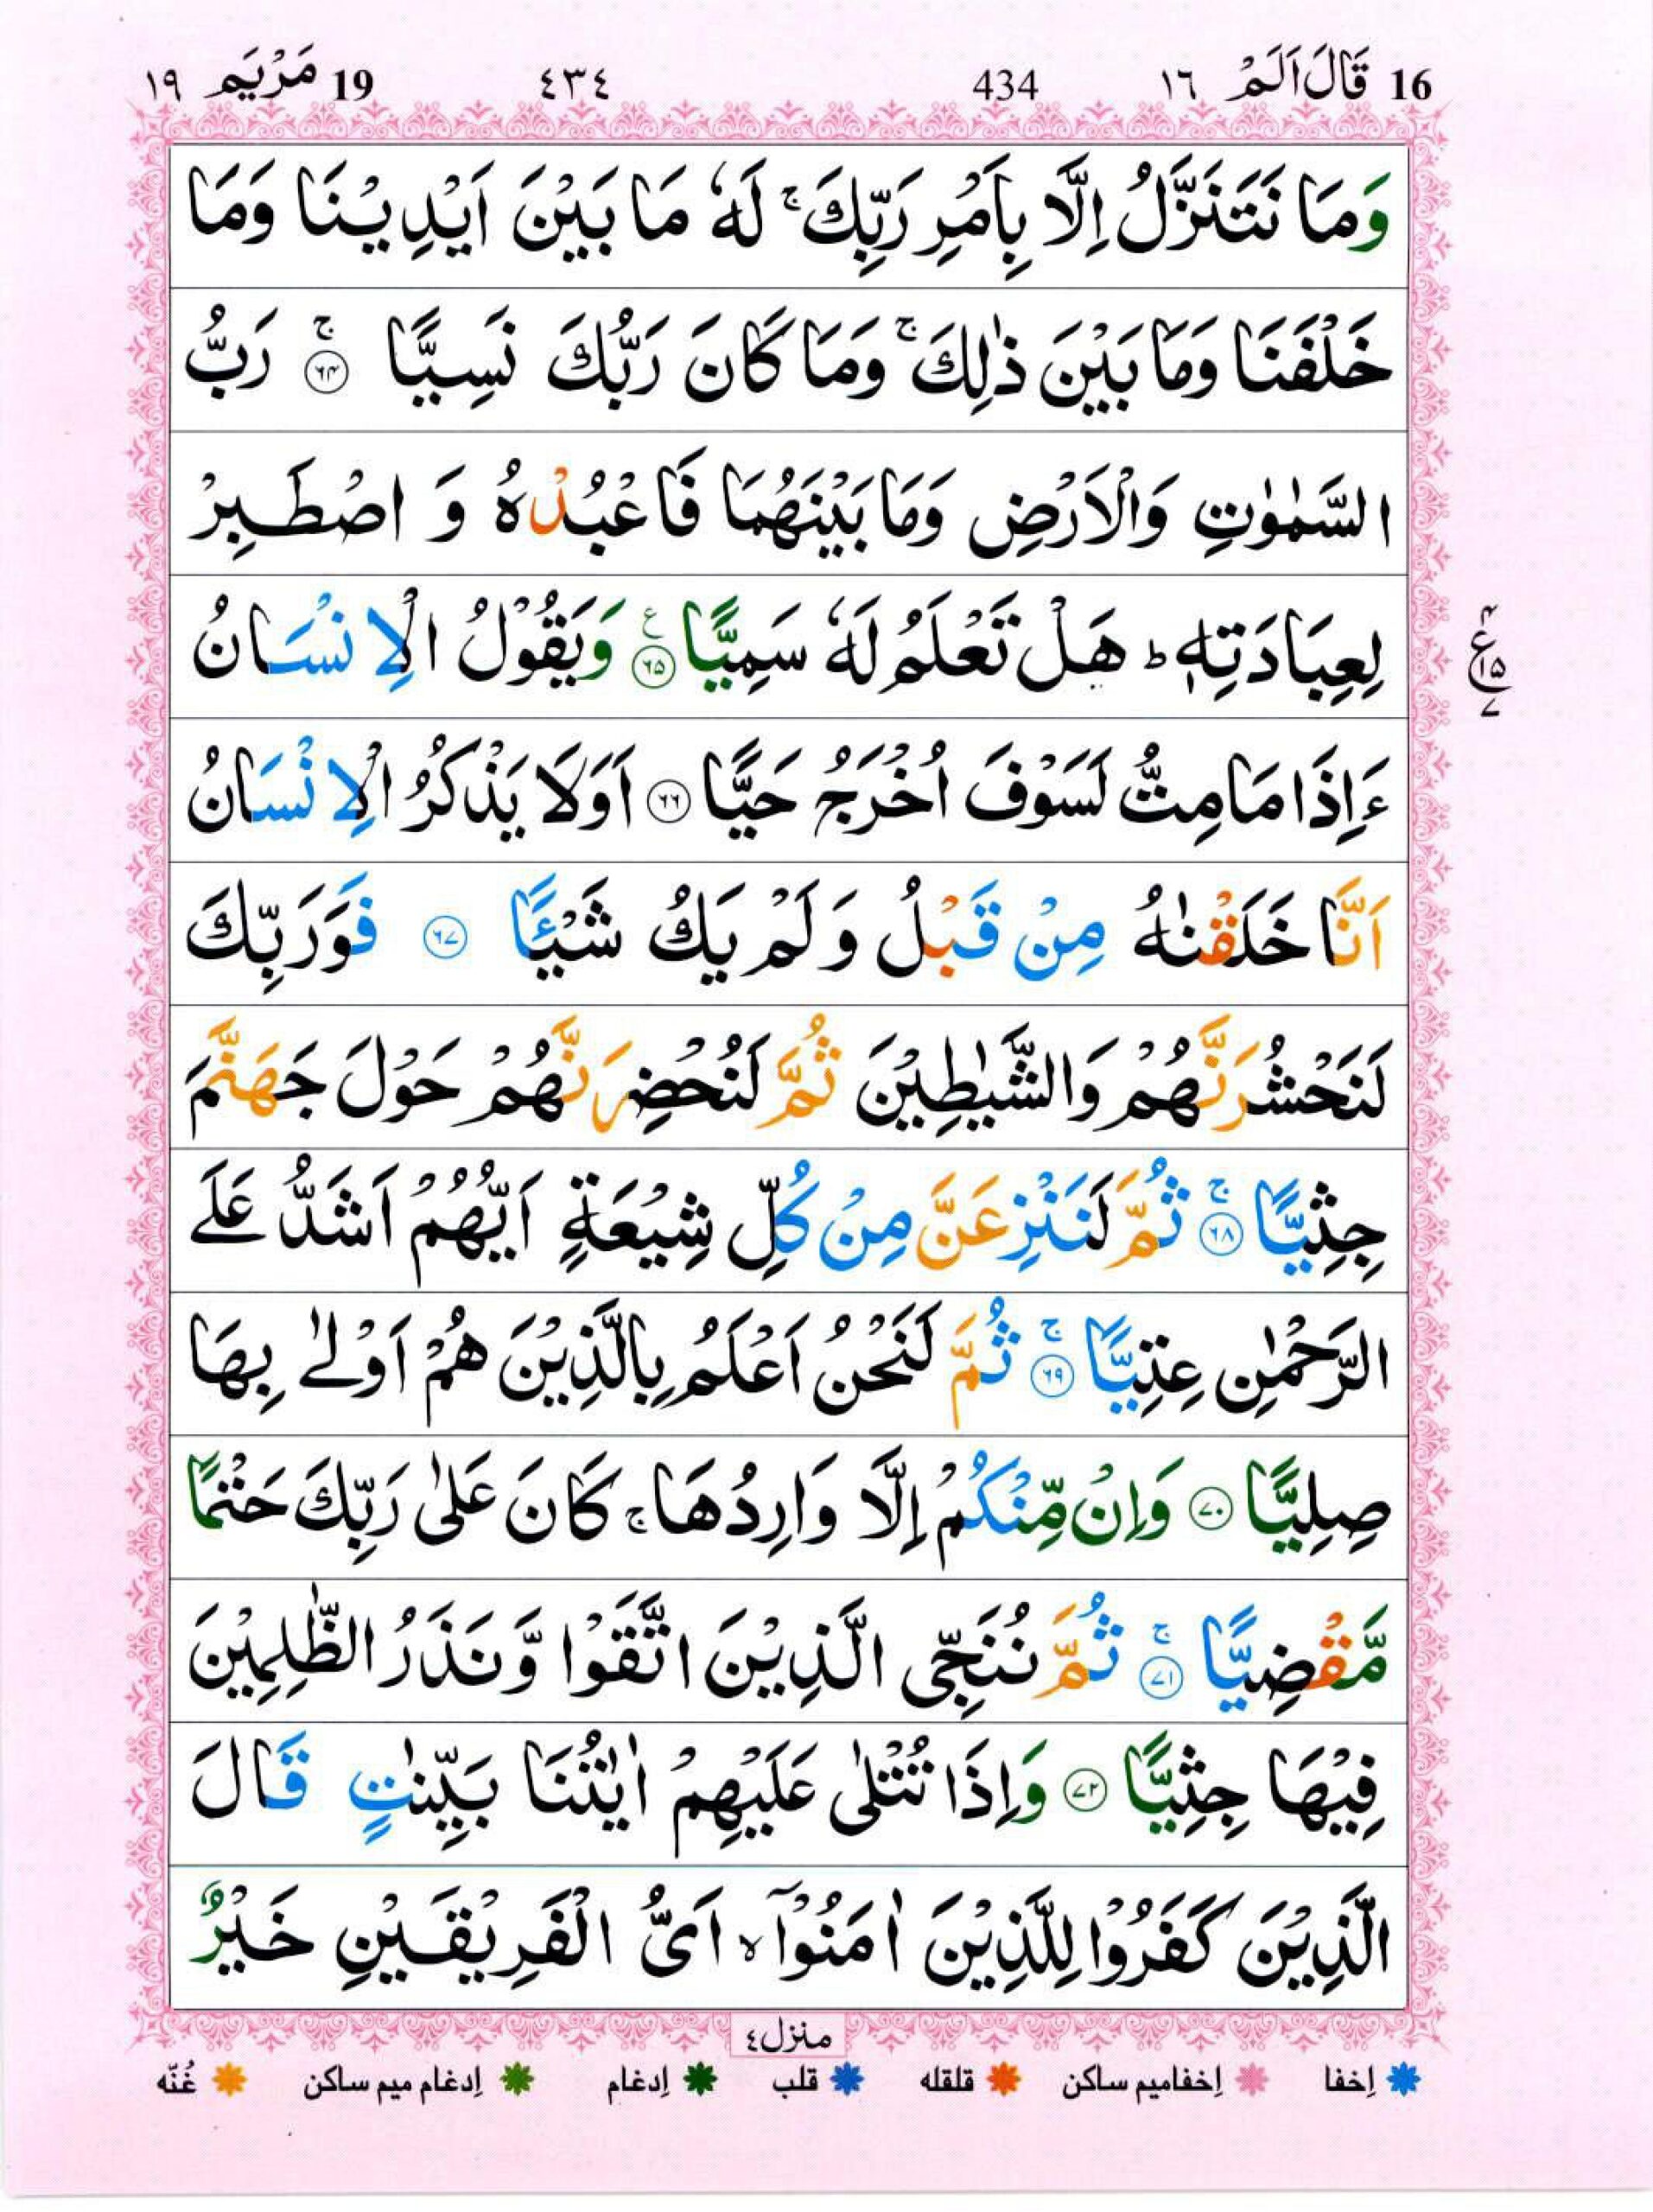 16 قَالَ اَلَمْ ١٦ 434 ٤٣٤ 19 مَرْيَم ١٩
وَمَا نَتَنَزَّلُ اِلَّا بِاَمْرِ رَبِّكَ ۚ لَهٗ مَا بَيْنَ اَيْدِيْنَا وَمَا
خَلْفَنَا وَمَا بَيْنَ ذٰلِكَ ۚ وَمَا كَانَ رَبُّكَ نَسِيًّا ۚ ﴿۶۴﴾ رَبُّ
السَّمٰوٰتِ وَالْاَرْضِ وَمَا بَيْنَهُمَا فَاعْبُدْهُ وَ اصْطَبِرْ
لِعِبَادَتِهٖ ؕ هَلْ تَعْلَمُ لَهٗ سَمِيًّا ﴿۶۵﴾ ع وَيَقُوْلُ الْاِنْسَانُ
ع ۴ ۱۵ ۷
ءَاِذَا مَا مِتُّ لَسَوْفَ اُخْرَجُ حَيًّا ﴿۶۶﴾ اَوَلَا يَذْكُرُ الْاِنْسَانُ
اَنَّا خَلَقْنٰهُ مِنْ قَبْلُ وَلَمْ يَكُ شَيْـًٔا ﴿۶۷﴾ فَوَرَبِّكَ
لَنَحْشُرَنَّهُمْ وَالشَّيٰطِيْنَ ثُمَّ لَنُحْضِرَنَّهُمْ حَوْلَ جَهَنَّمَ
جِثِيًّا ۚ ﴿۶۸﴾ ثُمَّ لَنَنْزِعَنَّ مِنْ كُلِّ شِيْعَةٍ اَيُّهُمْ اَشَدُّ عَلَى
الرَّحْمٰنِ عِتِيًّا ۚ ﴿۶۹﴾ ثُمَّ لَنَحْنُ اَعْلَمُ بِالَّذِيْنَ هُمْ اَوْلٰى بِهَا
صِلِيًّا ﴿۷۰﴾ وَاِنْ مِّنْكُمْ اِلَّا وَارِدُهَا ۚ كَانَ عَلٰى رَبِّكَ حَتْمًا
مَّقْضِيًّا ۚ ﴿۷۱﴾ ثُمَّ نُنَجِّى الَّذِيْنَ اتَّقَوْا وَّنَذَرُ الظّٰلِمِيْنَ
فِيْهَا جِثِيًّا ﴿۷۲﴾ وَاِذَا تُتْلٰى عَلَيْهِمْ اٰيٰتُنَا بَيِّنٰتٍ قَالَ
الَّذِيْنَ كَفَرُوْا لِلَّذِيْنَ اٰمَنُوْۤا ۙ اَىُّ الْفَرِيْقَيْنِ خَيْرٌ
منزل٤
اِخفا اِخفامیم ساکن قلقله قلب اِدغام اِدغام میم ساکن غُنّه